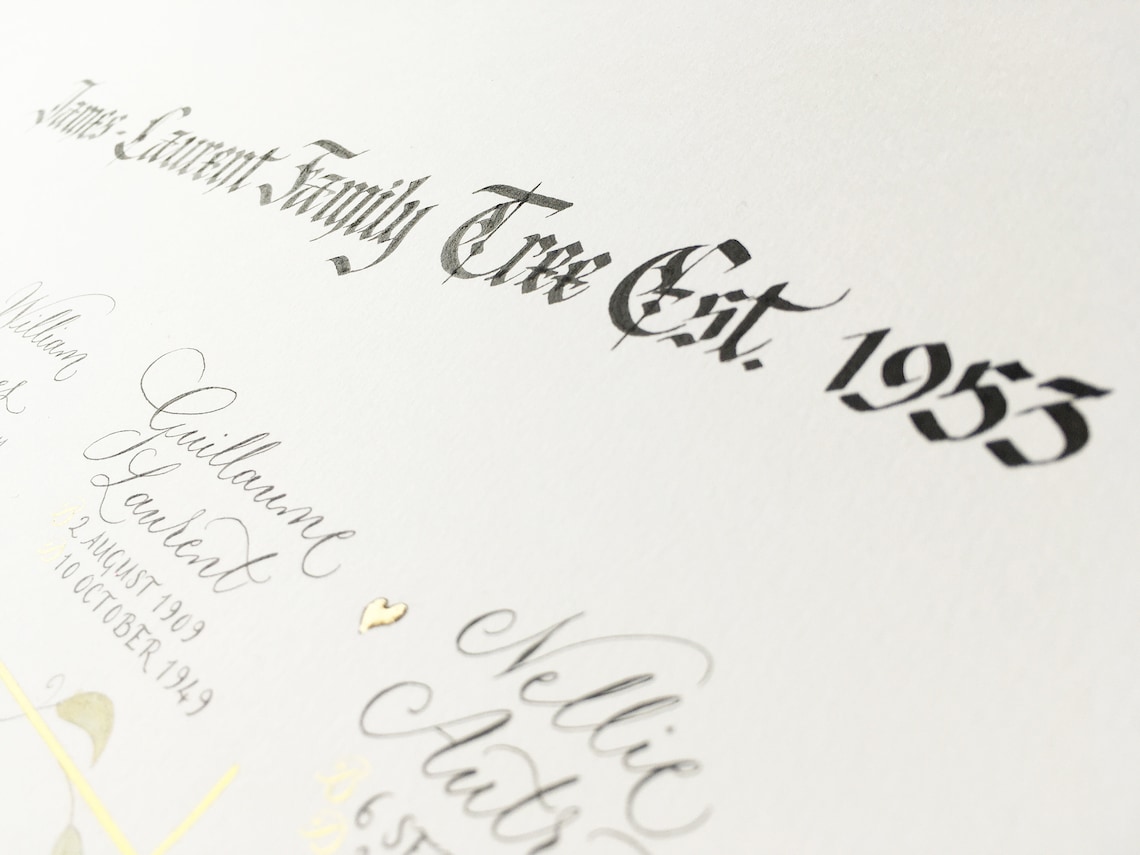 James-Laurent Family Tree Est. 1953
William
Guillaume
Laurent
B 2 AUGUST 1909
D 10 OCTOBER 1949
Nellie
B 6
D